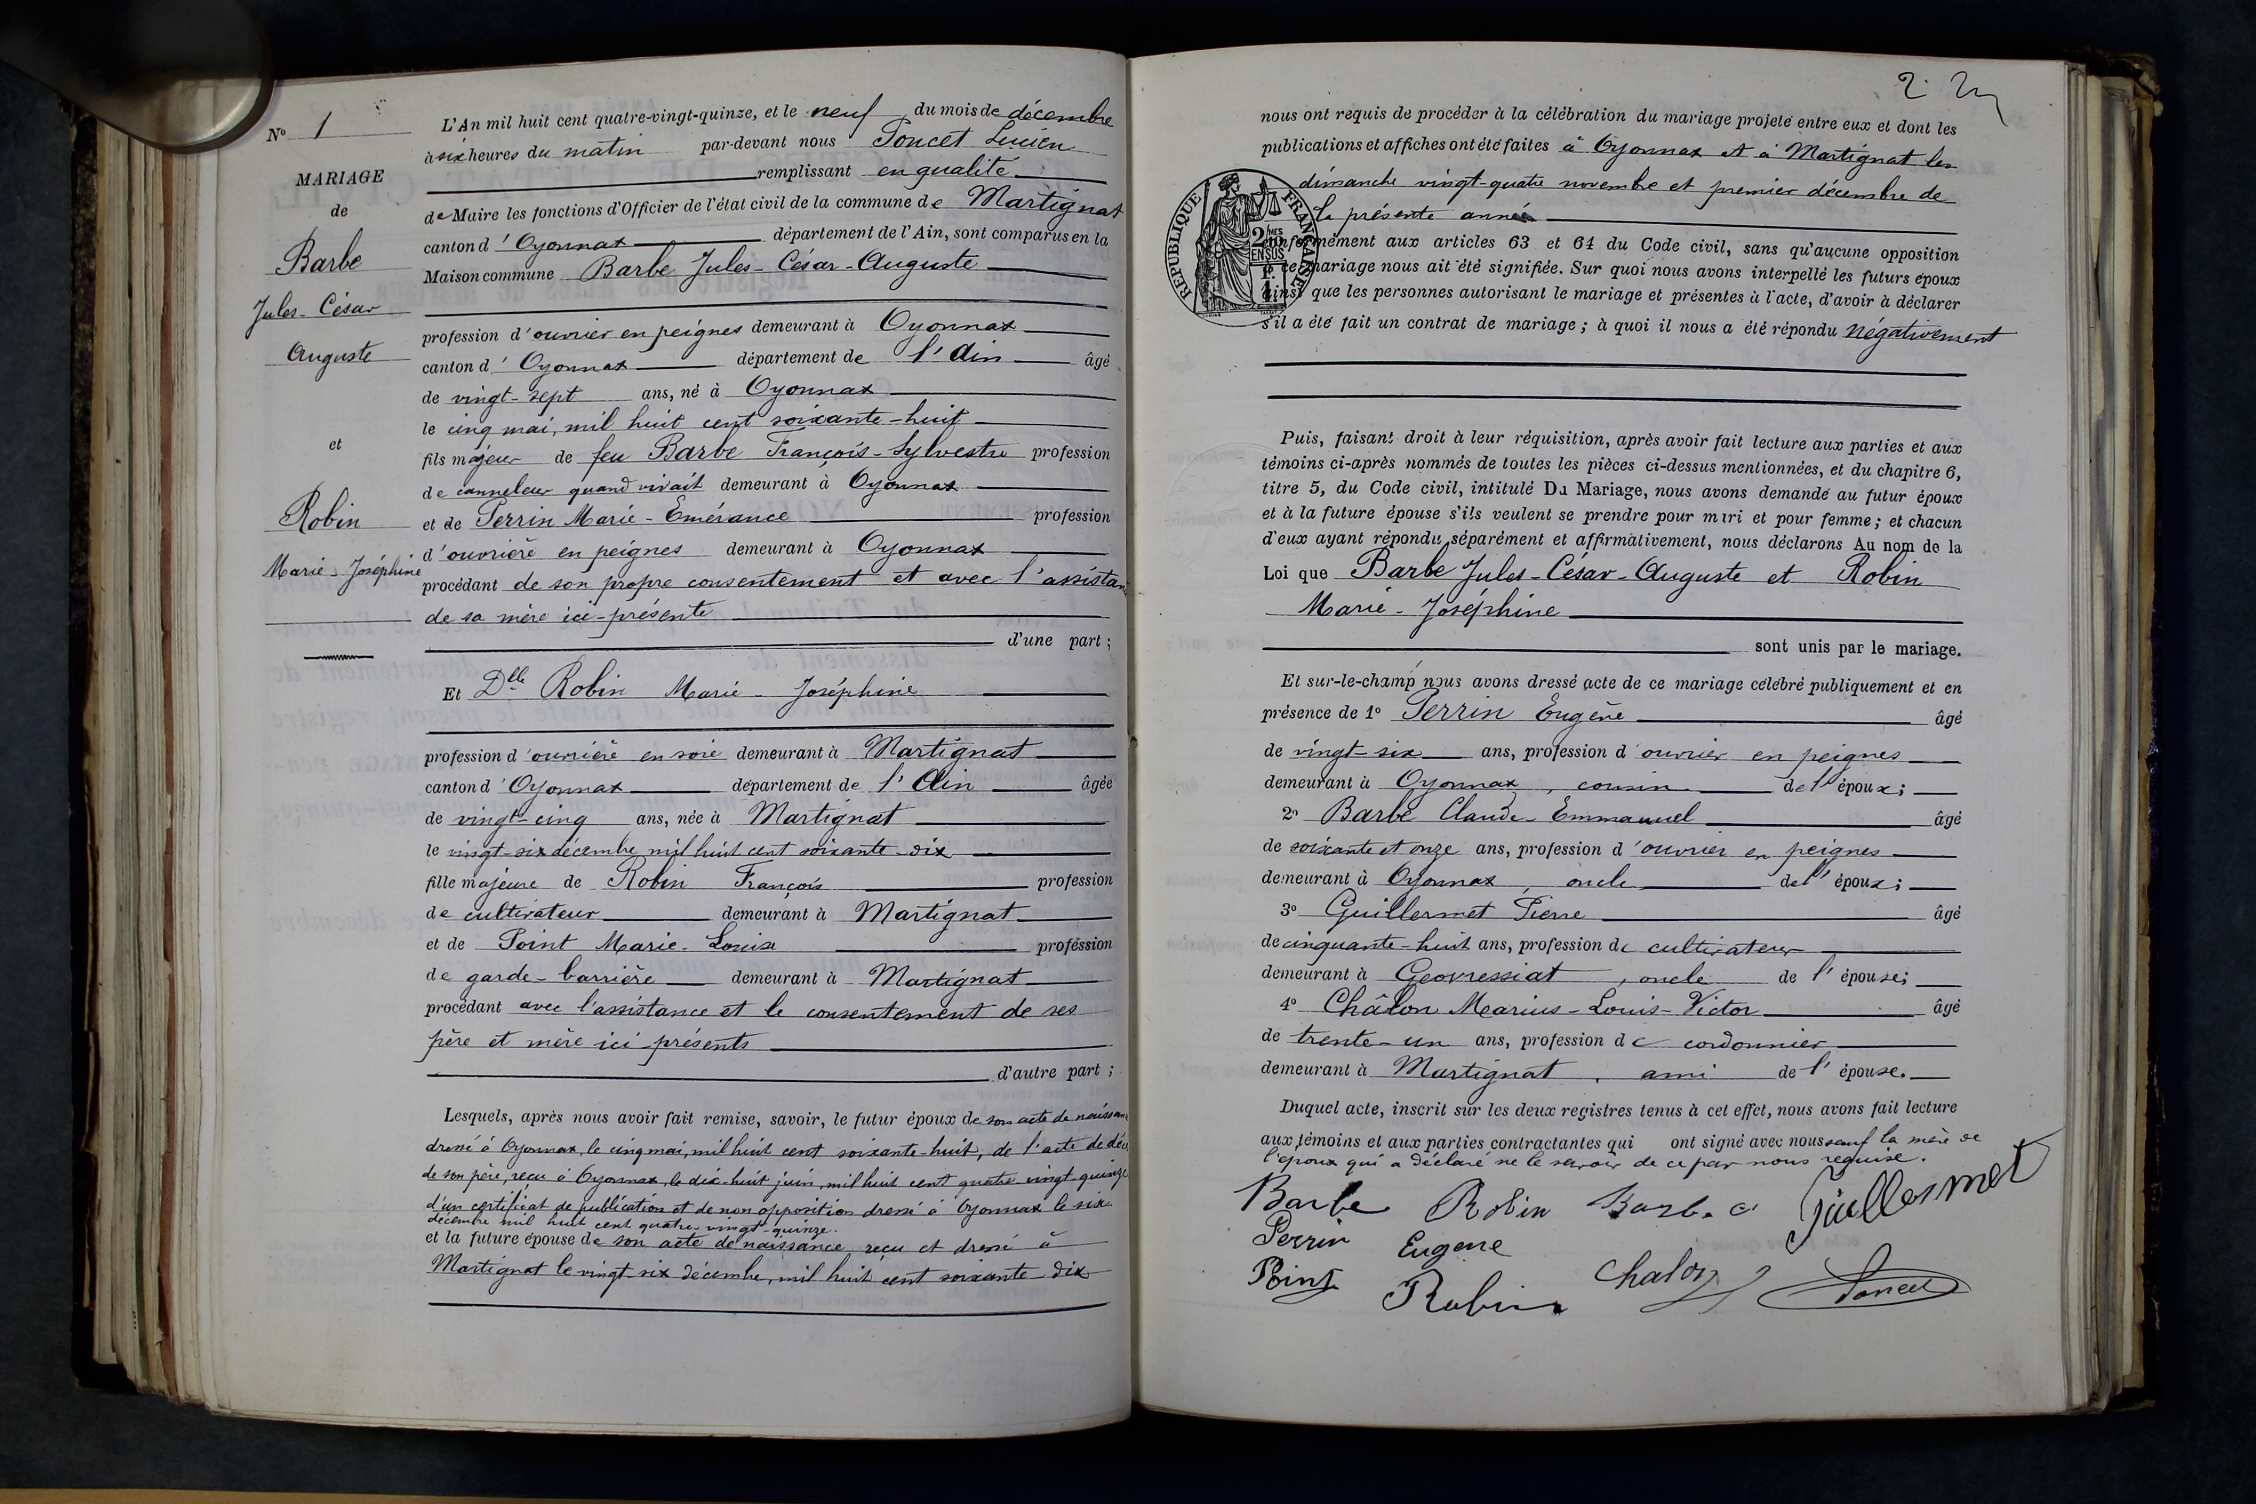 N° 1
MARIAGE
de
Barbe
Jules-César
Auguste
et
Robin
Marie-Joséphine
L'An mil huit cent quatre-vingt-quinze, et le neuf du mois de décembre
à six heures du matin par-devant nous Poncet Lucien
remplissant en qualité
de Maire les fonctions d'Officier de l'état civil de la commune de Martignat
canton d'Oyonnax département de l'Ain, sont comparus en la
Maison commune Barbe Jules-César-Auguste
profession d'ouvrier en peignes demeurant à Oyonnax
canton d'Oyonnax département de l'Ain âgé
de vingt-sept ans, né à Oyonnax
le cinq mai, mil huit cent soixante-huit
fils majeur de feu Barbe François-Sylvestre profession
de canneleur quand vivait demeurant à Oyonnax
et de Perrin Marie-Emérance profession
d'ouvrière en peignes demeurant à Oyonnax
procédant de son propre consentement et avec l'assistan
de sa mère ici-présente
d'une part ;
Et Dlle Robin Marie-Joséphine
profession d'ouvrière en soie demeurant à Martignat
canton d'Oyonnax département de l'Ain âgée
de vingt-cinq ans, née à Martignat
le vingt-six décembre mil huit cent soixante-dix
fille majeure de Robin François profession
de cultivateur demeurant à Martignat
et de Point Marie-Louise profession
de garde-barrière demeurant à Martignat
procédant avec l'assistance et le consentement de ses
père et mère ici-présents
d'autre part ;
Lesquels, après nous avoir fait remise, savoir, le futur époux de son acte de naissan
dressé à Oyonnax, le cinq mai, mil huit cent soixante-huit, de l'acte de décè
de son père, reçu à Oyonnax, le dix-huit juin, mil huit cent quatre vingt-quinze
d'un certificat de publication et de non opposition dressé à Oyonnax le six
décembre mil huit cent quatre-vingt-quinze.
et la future épouse de son acte de naissance reçu et dressé à
Martignat le vingt six décembre, mil huit cent soixante-dix
2
nous ont requis de procéder à la célébration du mariage projeté entre eux et dont les
publications et affiches ont été faites à Oyonnax et à Martignat les
dimanche vingt-quatre novembre et premier décembre de
la présente année
conformément aux articles 63 et 64 du Code civil, sans qu'aucune opposition
à ce mariage nous ait été signifiée. Sur quoi nous avons interpellé les futurs époux
ainsi que les personnes autorisant le mariage et présentes à l'acte, d'avoir à déclarer
s'il a été fait un contrat de mariage ; à quoi il nous a été répondu négativement
RÉPUBLIQUE FRANÇAISE
2 MES EN SUS
Puis, faisant droit à leur réquisition, après avoir fait lecture aux parties et aux
témoins ci-après nommés de toutes les pièces ci-dessus mentionnées, et du chapitre 6,
titre 5, du Code civil, intitulé Du Mariage, nous avons demandé au futur époux
et à la future épouse s'ils veulent se prendre pour mari et pour femme ; et chacun
d'eux ayant répondu séparément et affirmativement, nous déclarons Au nom de la
Loi que Barbe Jules-César-Auguste et Robin
Marie-Joséphine
sont unis par le mariage.
Et sur-le-champ nous avons dressé acte de ce mariage célébré publiquement et en
présence de 1° Perrin Eugène âgé
de vingt-six ans, profession d'ouvrier en peignes
demeurant à Oyonnax, cousin de l'époux ;
2° Barbe Claude-Emmanuel âgé
de soixante et onze ans, profession d'ouvrier en peignes
demeurant à Oyonnax, oncle de l'époux ;
3° Guillermet Pierre âgé
de cinquante-huit ans, profession de cultivateur
demeurant à Geovressiat, oncle de l'épouse ;
4° Châlon Marius-Louis-Victor âgé
de trente-un ans, profession de cordonnier
demeurant à Martignat, ami de l'épouse.
Duquel acte, inscrit sur les deux registres tenus à cet effet, nous avons fait lecture
aux témoins et aux parties contractantes qui ont signé avec nous sauf la mère de
l'époux qui a déclaré ne le savoir de ce par nous requise.
Barbe Robin Barbe C Guillermet
Perrin Eugene
Point Robin Chalon Poncet